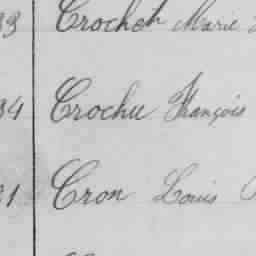 33 Crochet Marie
34 Crochu François
21 Cron Louis